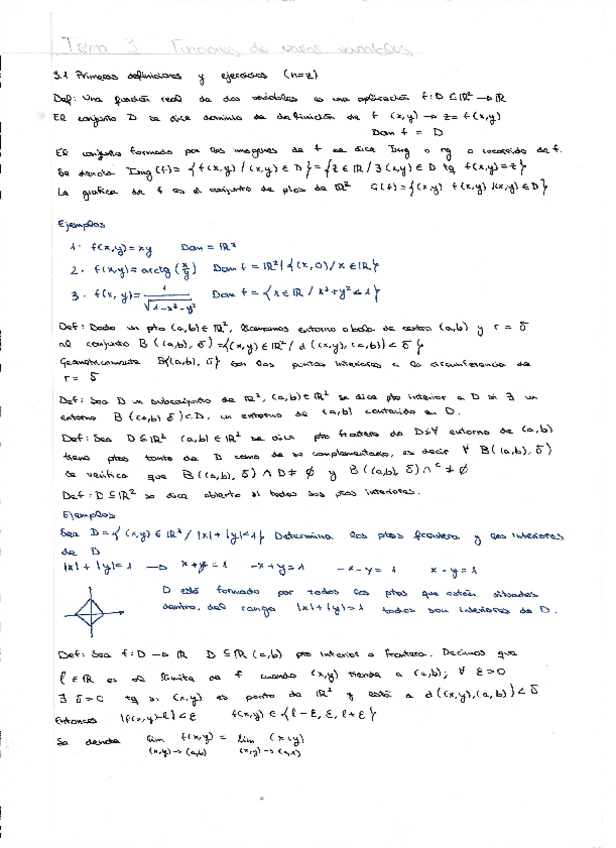 Tema 3 Funciones de varias variables
3.1 Primeras definiciones y ejercicios (n=2)
Def: Una función real de dos variables es una aplicación f: D ⊆ ℝ² → ℝ
El conjunto D se dice dominio de definición de f (x,y) → z = f(x,y)
Dom f = D
El conjunto formado por las imagenes de f se dice Img o rg o recorrido de f.
Se denota Img(f) = {f(x,y) / (x,y) ∈ D} = {z ∈ ℝ / ∃(x,y) ∈ D tq f(x,y) = z}
La gráfica de f es el conjunto de ptos de ℝ² G(f) = {(x,y) f(x,y) /(x,y) ∈ D}
Ejemplos
1. f(x,y) = xy Dom = ℝ²
2. f(x,y) = arctg (x/y) Dom f = ℝ² | {(x,0) / x ∈ ℝ}
3. f(x,y) = 1/√(1-x²-y²) Dom f = {x ∈ ℝ / x²+y² < 1}
Def: Dado un pto (a,b) ∈ ℝ², llamamos entorno o bola de centro (a,b) y r = δ
al conjunto B((a,b), δ) = {(x,y) ∈ ℝ² / d((x,y), (a,b)) < δ}
Geometricamente B{(a,b), δ} son los puntos interiores a la circunferencia de
r = δ
Def: Sea D un subconjunto de ℝ², (a,b) ∈ ℝ² se dice pto interior a D si ∃ un
entorno B((a,b) δ) ⊂ D, un entorno de (a,b) contenido en D.
Def: Sea D ⊆ ℝ² (a,b) ∈ ℝ² se dice pto frontera de D si ∀ entorno de (a,b)
tiene ptos tanto de D como de su complementario, es decir ∀ B((a,b), δ)
se verifica que B((a,b), δ) ∩ D ≠ ∅ y B((a,b), δ) ∩ ᶜ ≠ ∅
Def: D ⊆ ℝ² se dice abierto si todos sus ptos interiores.
Ejemplos
Sea D = {(x,y) ∈ ℝ² / |x| + |y| < 1} Determina los ptos frontera y los interiores
de D
|x| + |y| = 1 → x+y = 1 -x+y = 1 -x-y = 1 x-y = 1
D está formado por todos los ptos que están situados
dentro del rango |x|+|y| = 1 todos son interiores de D.
Def: Sea f: D → ℝ D ⊆ ℝ (a,b) pto interior o frontera. Decimos que
l ∈ ℝ es el límite de f cuando (x,y) tiende a (a,b); ∀ ε > 0
∃ δ > 0 tq si (x,y) es punto de ℝ² y está a d((x,y),(a,b)) < δ
Entonces |f(x,y)-l| < ε f(x,y) ∈ {l - ε, ε, l + ε}
Se denota lim f(x,y) = lim (x+y)
(x,y)→(a,b) (x,y)→(1,1)